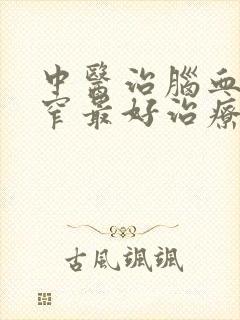 中醫治腦血
窄最好治療
古風颯颯